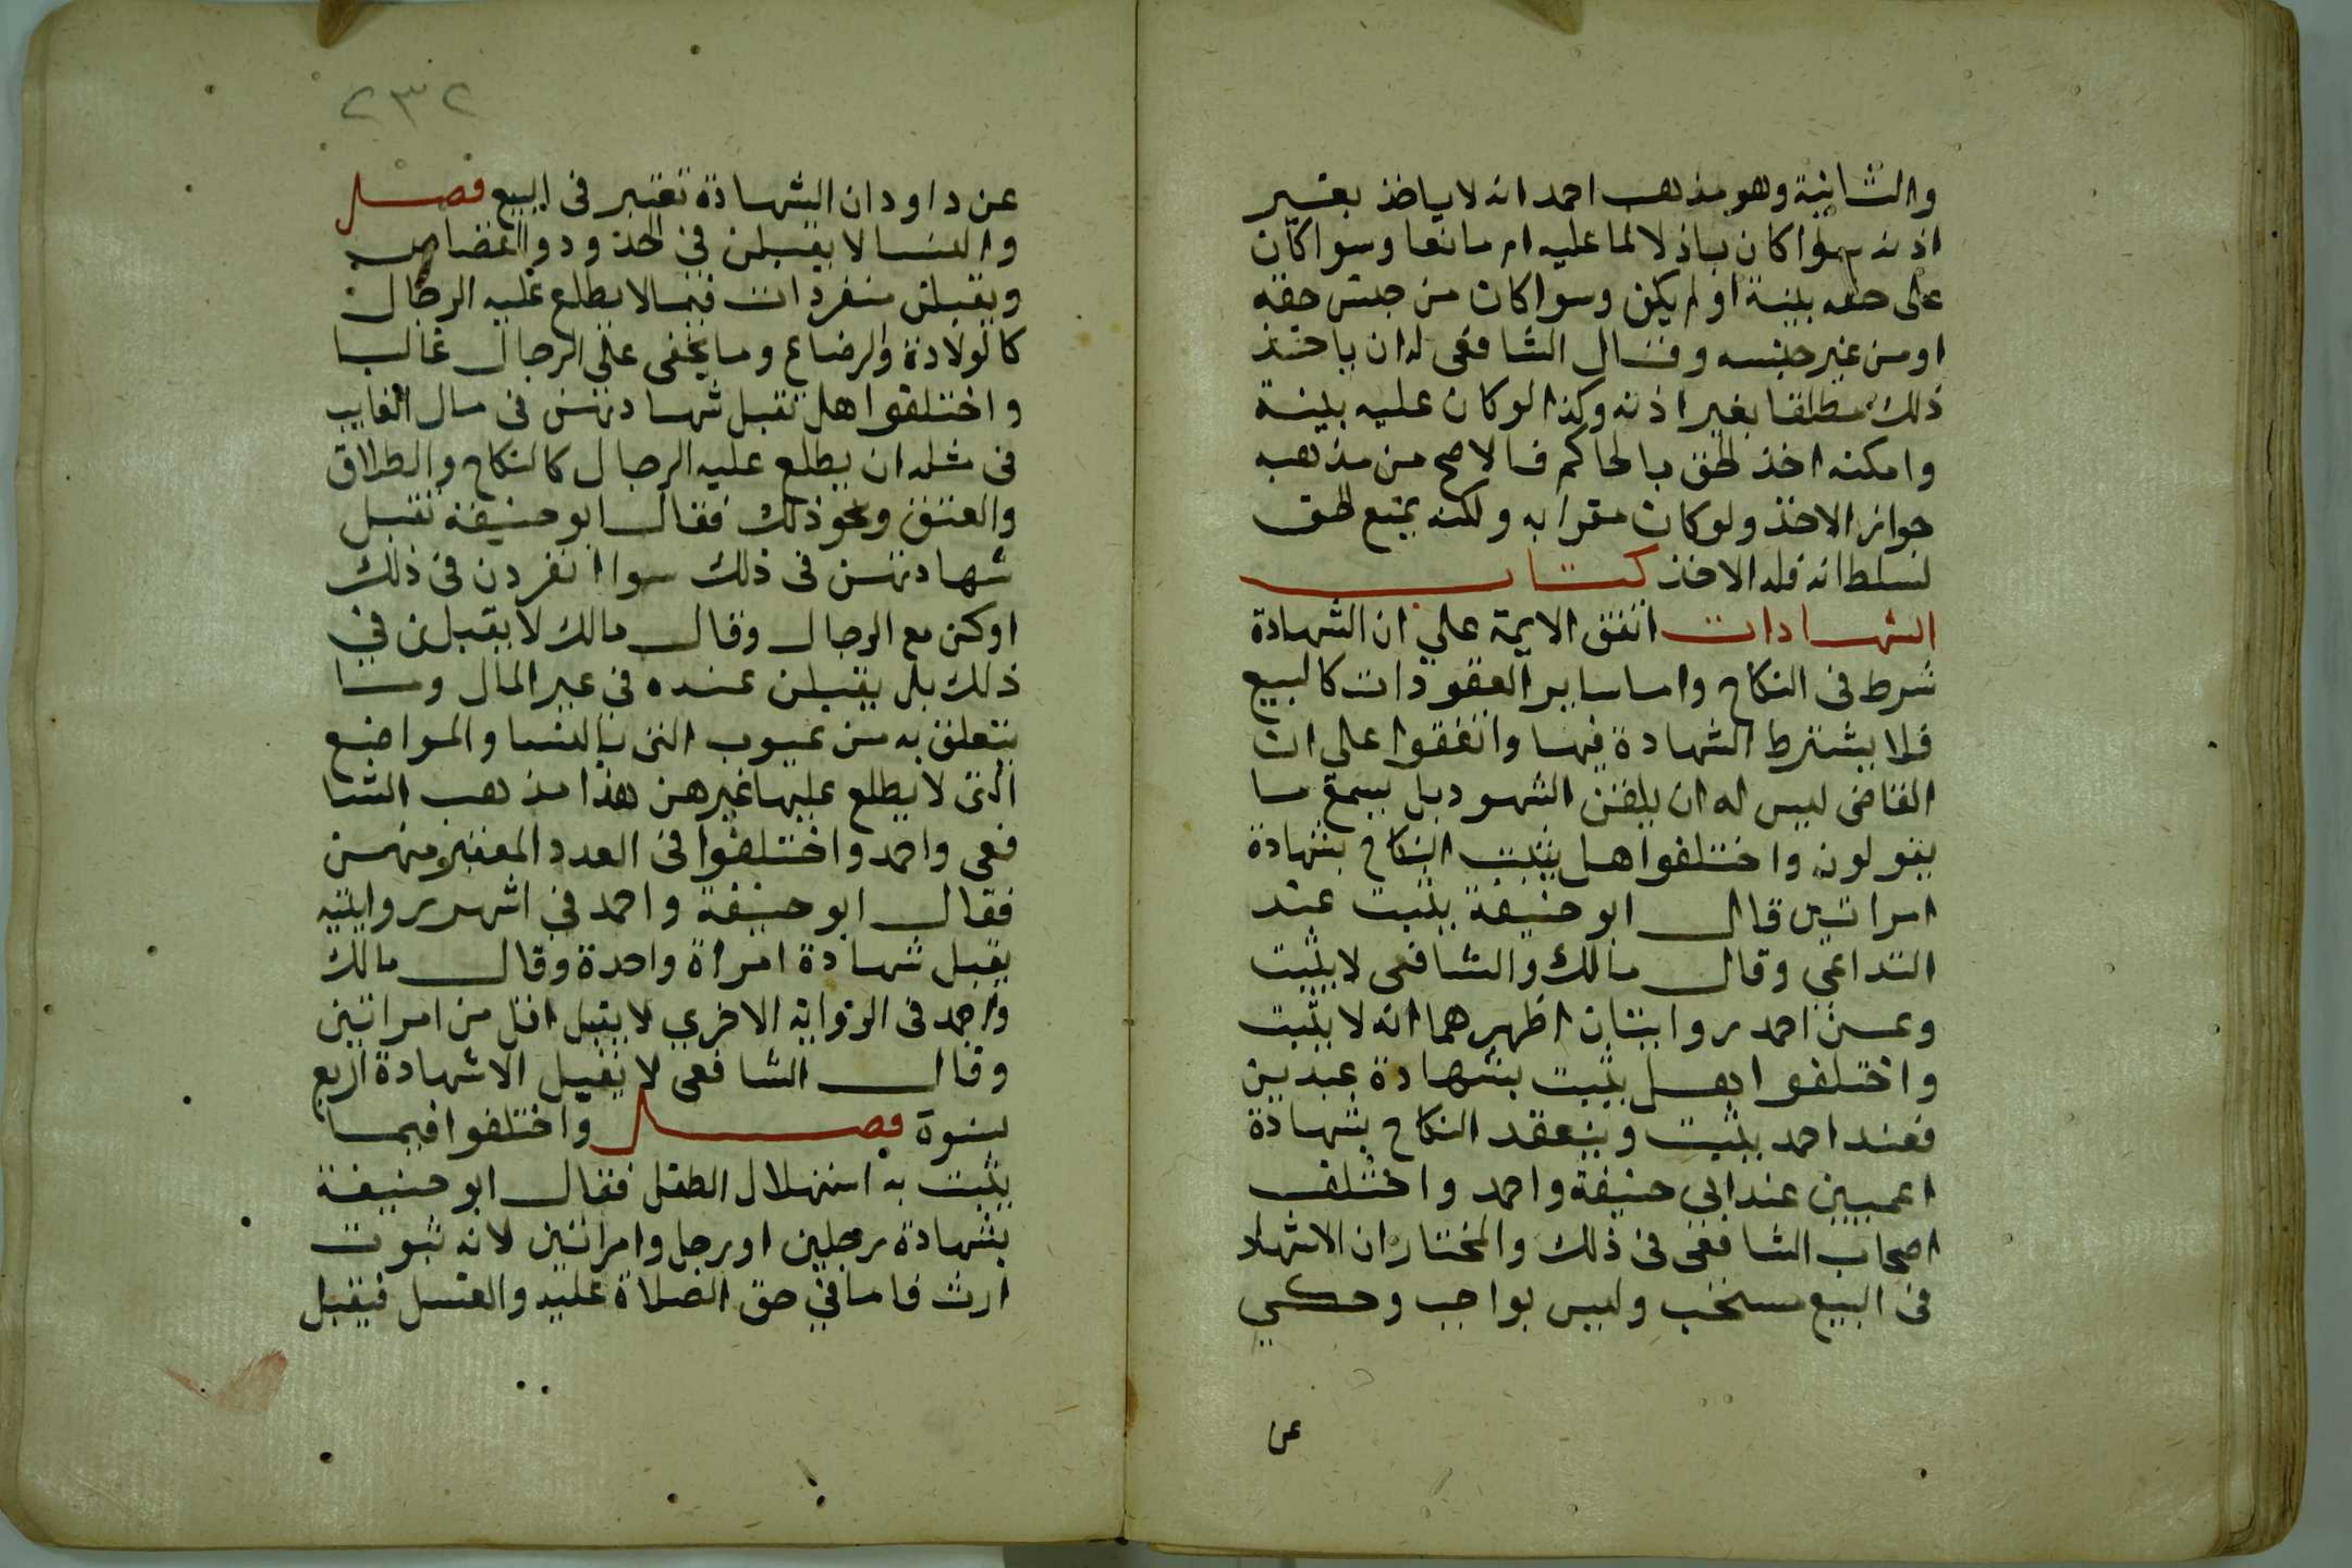 والثانية وهو مذهب احمد انه لا ياخذ بغير
اذنه سوا كان باذلا لما عليه او مانعا وسوا كان
على حقه بينة او لم يكن وسوا كان من جنس حقه
او من غير جنسه وقال الشافعى له ان ياخذ
ذلك مطلقا بغير اذنه وكذا لو كان عليه بينة
وامكنه اخذ الحق بالحاكم فالاصح من مذهبه
جواز الاخذ ولو كان مقرا به ولكنه يمنع الحق
لسلطانه فله الاخذ كتاب
الشهادات اتفق الايمة علي ان الشهادة
شرط فى النكاح واما ساير العقودات كالبيع
فلا يشترط الشهادة فيها واتفقوا على ان
القاضى ليس له ان يلقن الشهود بل يسمع ما
يقولون واختلفوا هل يثبت النكاح بشهادة
امراتين قال ابو حنيفة يثبت عند
التداعي وقال مالك والشافعى لا يثبت
وعن احمد روايتان اظهرهما انه لا يثبت
واختلفوا هل يثبت بشهادة عبدين
فعند احمد يثبت وينعقد النكاح بشهادة
اعميين عند ابى حنيفة واحمد واختلف
اصحاب الشافعى فى ذلك والمختار ان الاشهاد
فى البيع مستحب وليس بواجب وحكي
عن
٢٣٢
عن داود ان الشهادة تعتبر فى البيع فصل
والنسا لا يقبلن في الحدود والقصاص
ويقبلن منفردات فيما لا يطلع عليه الرجال
كالولادة والرضاع وما يخفى علي الرجال غالبا
واختلفوا هل تقبل شهادتهن فى مال الغايب
فى مثله ان يطلع عليه الرجال كالنكاح والطلاق
والعتق ونحو ذلك فقال ابو حنيفة تقبل
شهادتهن فى ذلك سوا انفردن فى ذلك
او كن مع الرجال وقال مالك لا يقبلن في
ذلك بل يقبلن عنده فى غير المال وما
يتعلق به من عيوب التى بالنسا والمواضع
التى لا يطلع عليها غيرهن هذا مذهب الشا
فعى واحمد واختلفوا فى العدد المعتبر منهن
فقال ابو حنيفة واحمد في اشهر روايتيه
يقبل شهادة امراة واحدة وقال مالك
واحمد فى الرواية الاخري لا يقبل اقل من امراتين
وقال الشافعى لا يقبل الا شهادة اربع
نسوة فصل واختلفوا فيما
يثبت به استهلال الطفل فقال ابو حنيفة
بشهادة رجلين او رجل وامراتين لانه ثبوت
ارث فاما في حق الصلاة عليه والغسل فيقبل